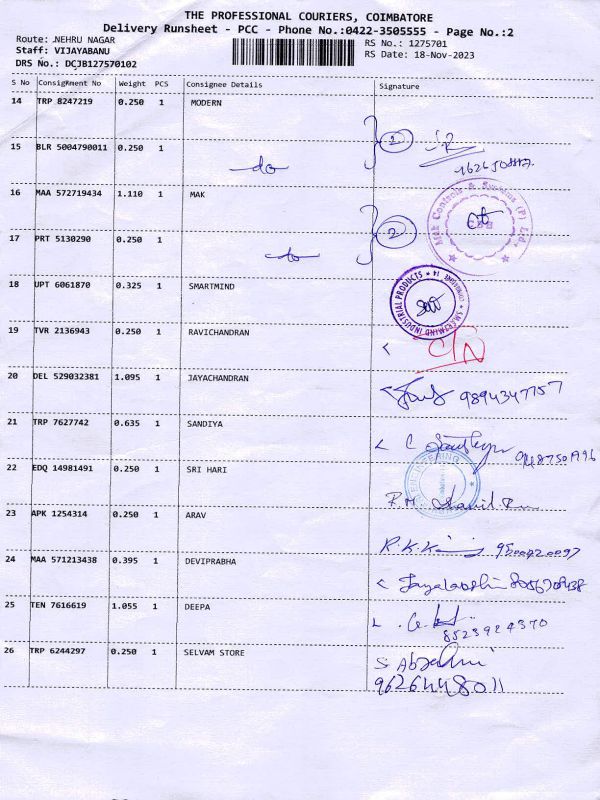 THE PROFESSIONAL COURIERS, COIMBATORE
Delivery Runsheet - PCC - Phone No.:0422-3505555 - Page No.:2
Route: .NEHRU NAGAR RS No.: 1275701
Staff: VIJAYABANU RS Date: 18-Nov-2023
DRS No.: DCJB127570102
S No Consignment No Weight PCS Consignee Details Signature
14 TRP 8247219 0.250 1 MODERN
2
15 BLR 5004790011 0.250 1
do
16 MAA 572719434 1.110 1 MAK
2
17 PRT 5130290 0.250 1
do
18 UPT 6061870 0.325 1 SMARTMIND
19 TVR 2136943 0.250 1 RAVICHANDRAN
20 DEL 529032381 1.095 1 JAYACHANDRAN
9894347757
21 TRP 7627742 0.635 1 SANDIYA
22 EDQ 14981491 0.250 1 SRI HARI
23 APK 1254314 0.250 1 ARAV
24 MAA 571213438 0.395 1 DEVIPRABHA
25 TEN 7616619 1.055 1 DEEPA
8523924370
26 TRP 6244297 0.250 1 SELVAM STORE